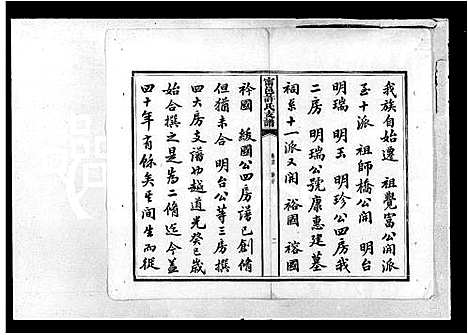 我族自始遷 祖覺富公開派
至十派 祖師橋公開 明台
明瑞 明玉 明珍公四房我
二房 明瑞公號康惠建墓
祠系十一派又開 裕國
甯邑許氏支譜
衿國 級國公四房譜已創脩
但猶未合 明台公等三房撰
四大房支譜也越道光癸巳歲
始合撰之是為二脩迄今蓋
四十年有餘矣其間生而從